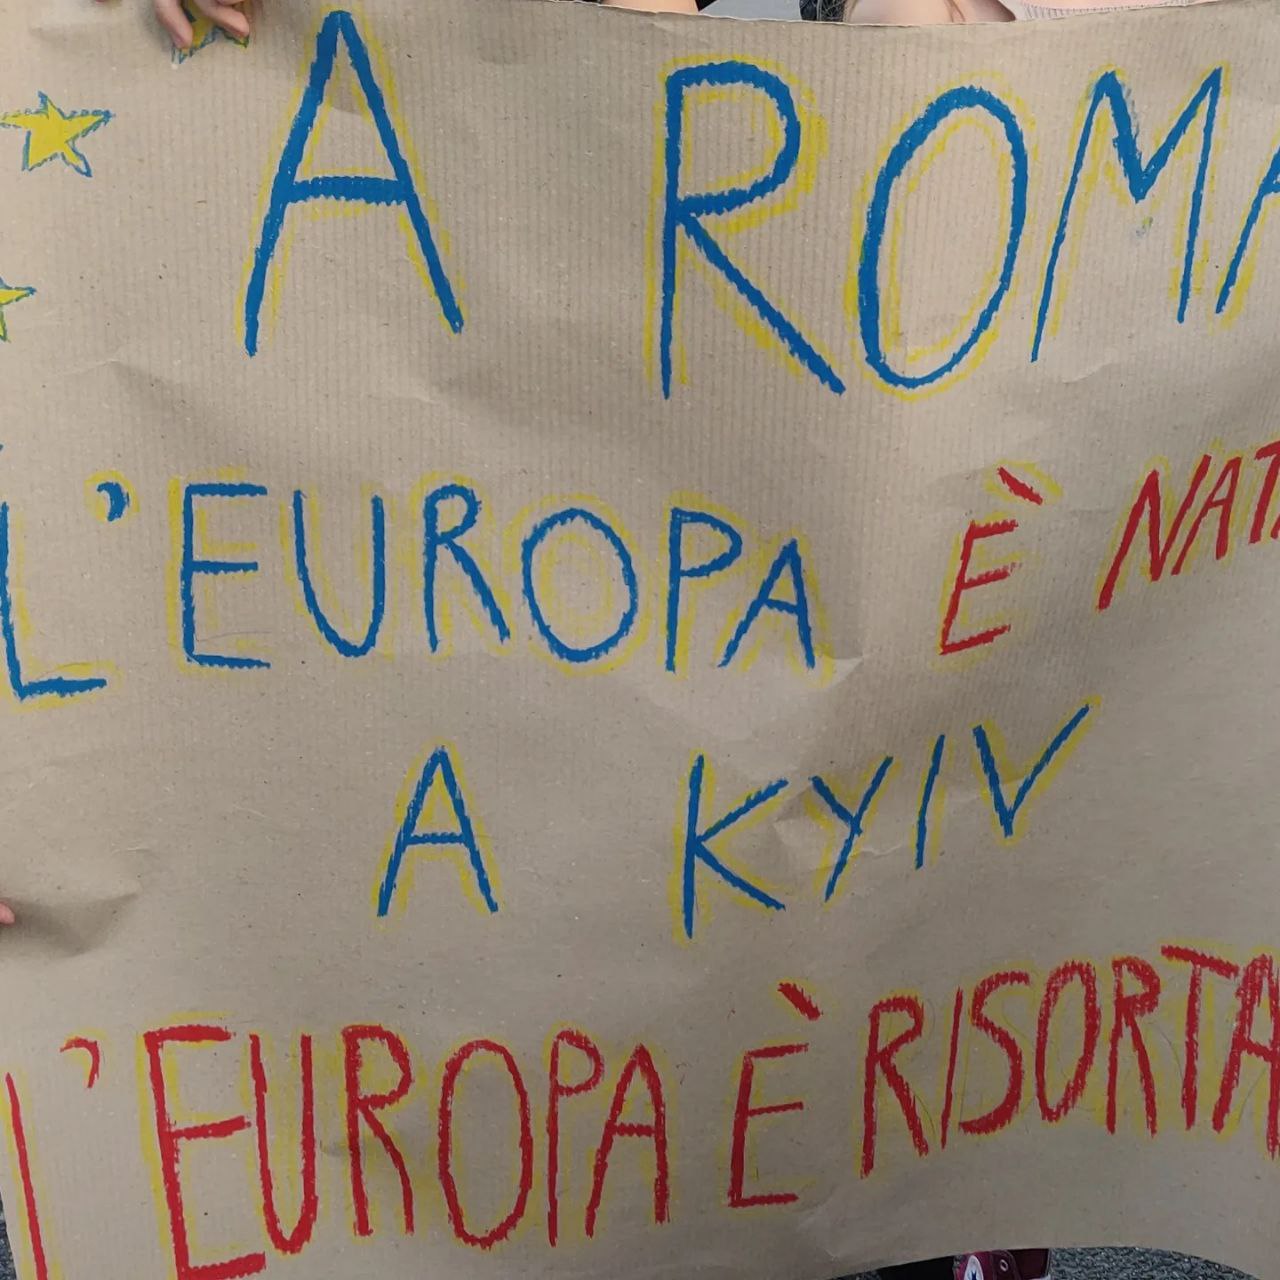 A ROMA
L'EUROPA È NATA
A KYIV
L'EUROPA È RISORTA